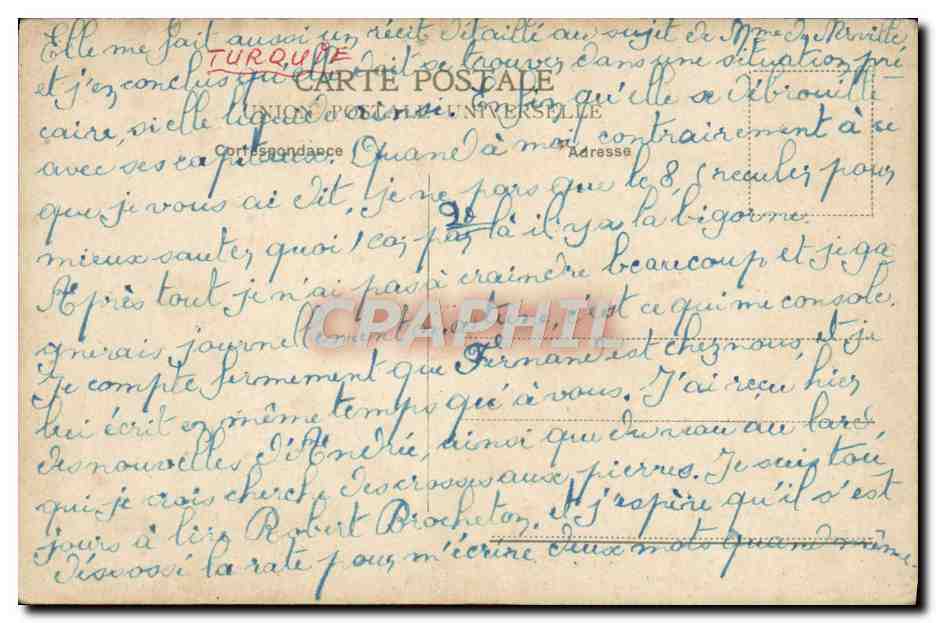 Elle me fait aussi un récit détaillé au sujet de Mme de Merville
TURQUIE
et j'en conclus qu'elle doit se trouver dans une situation pré
CARTE POSTALE
caire, si elle liquide ainsi. Enfin qu'elle se débrouille
UNION POSTALE UNIVERSELLE
avec ses capitaux. Quand à moi, contrairement à ce
Correspondance
Adresse
que je vous ai dit, je ne pars que le 8, (reculer pour
mieux sauter quoi) car par là il y a la bigorne.
Après tout je n'ai pas à craindre beaucoup et je ga
CPAPHIL
gnerais journellement, c'est ce qui me console.
Je compte fermement que Fernand est chez nous, et je
lui écrit en même temps qu'à vous. J'ai reçu hier
des nouvelles d'André, ainsi que du veau au lard
qui je crois cherche des crosses aux pierres. Je suis tou
jours à lire Robert Brocheton, et j'espère qu'il s'est
désossé la rate pour m'écrire deux mots quand même.